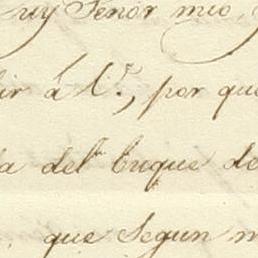 uy Señor mio,
ir á V., por que
a del buque de
que Segun m